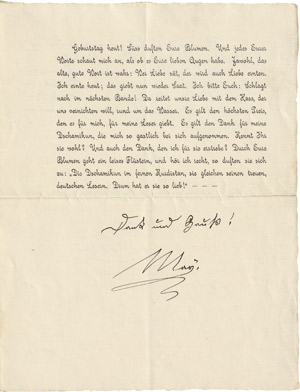 Geburtstag heut! Süss duften Eure Blumen. Und jedes Eurer
Worte schaut mich an, als ob es Eure lieben Augen habe. Jawohl, das
alte, gute Wort ist wahr: Wer Liebe sät, der wird auch Liebe ernten.
Ich ernte heut; das giebt nun wieder Saat. Ich bitte Euch: Schlagt
nach im nächsten Bande! Da reitet unsre Liebe mit dem Hass, der
uns vernichten will, rund um das Wasser. Es gilt den höchsten Preis,
den es für mich, für meine Leser giebt. Es gilt den Dank für meine
Dschamikun, die mich so gastlich bei sich aufgenommen. Kennt Ihr
sie wohl? Und auch den Dank, den ich für sie erstrebe! Durch Eure
Blumen geht ein leises Flüstern, und hör ich recht, so duften sie sich
zu: „Die Dschamikun im fernen Kurdistan, sie gleichen seinen treuen,
deutschen Lesern. Drum hat er sie so lieb!" – – –
Dank und Gruß!
May.